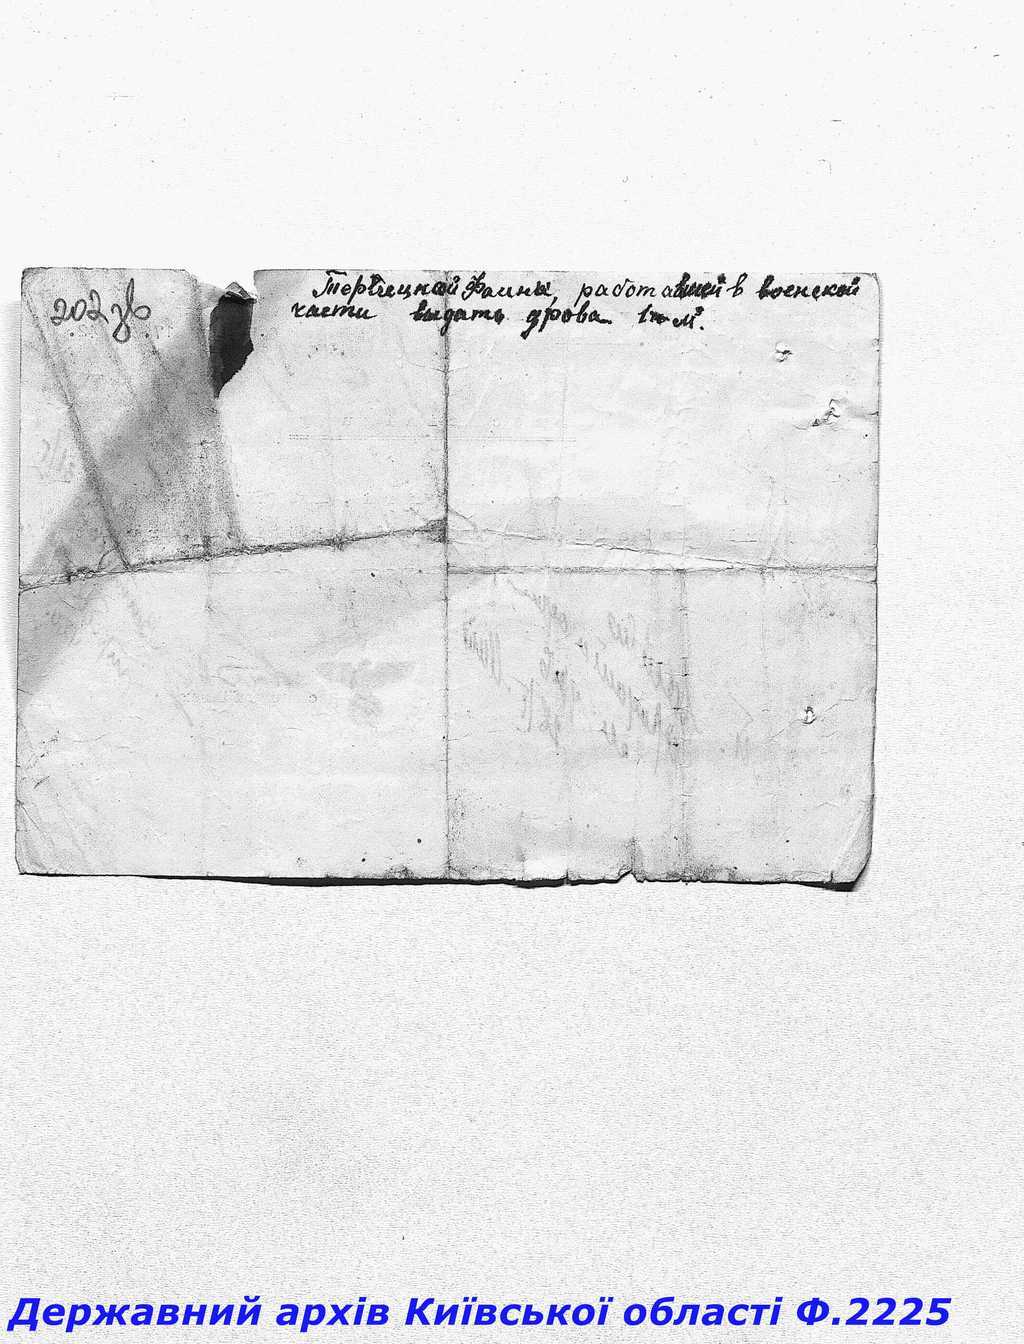 202 зв
Фаины, работавшей в военской
части выдать дрова 1 м³.
Державний архів Київської області Ф.2225